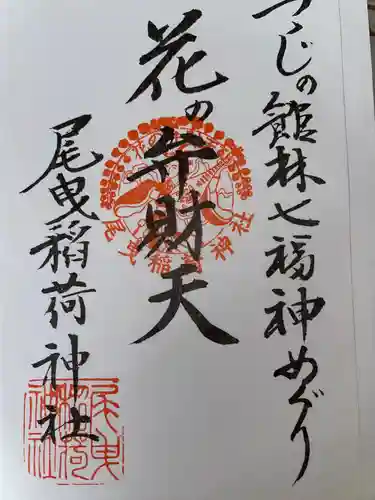 つゝじの館林七福神めぐり
花の弁財天
尾曳稲荷神社
尾曳稲荷神社